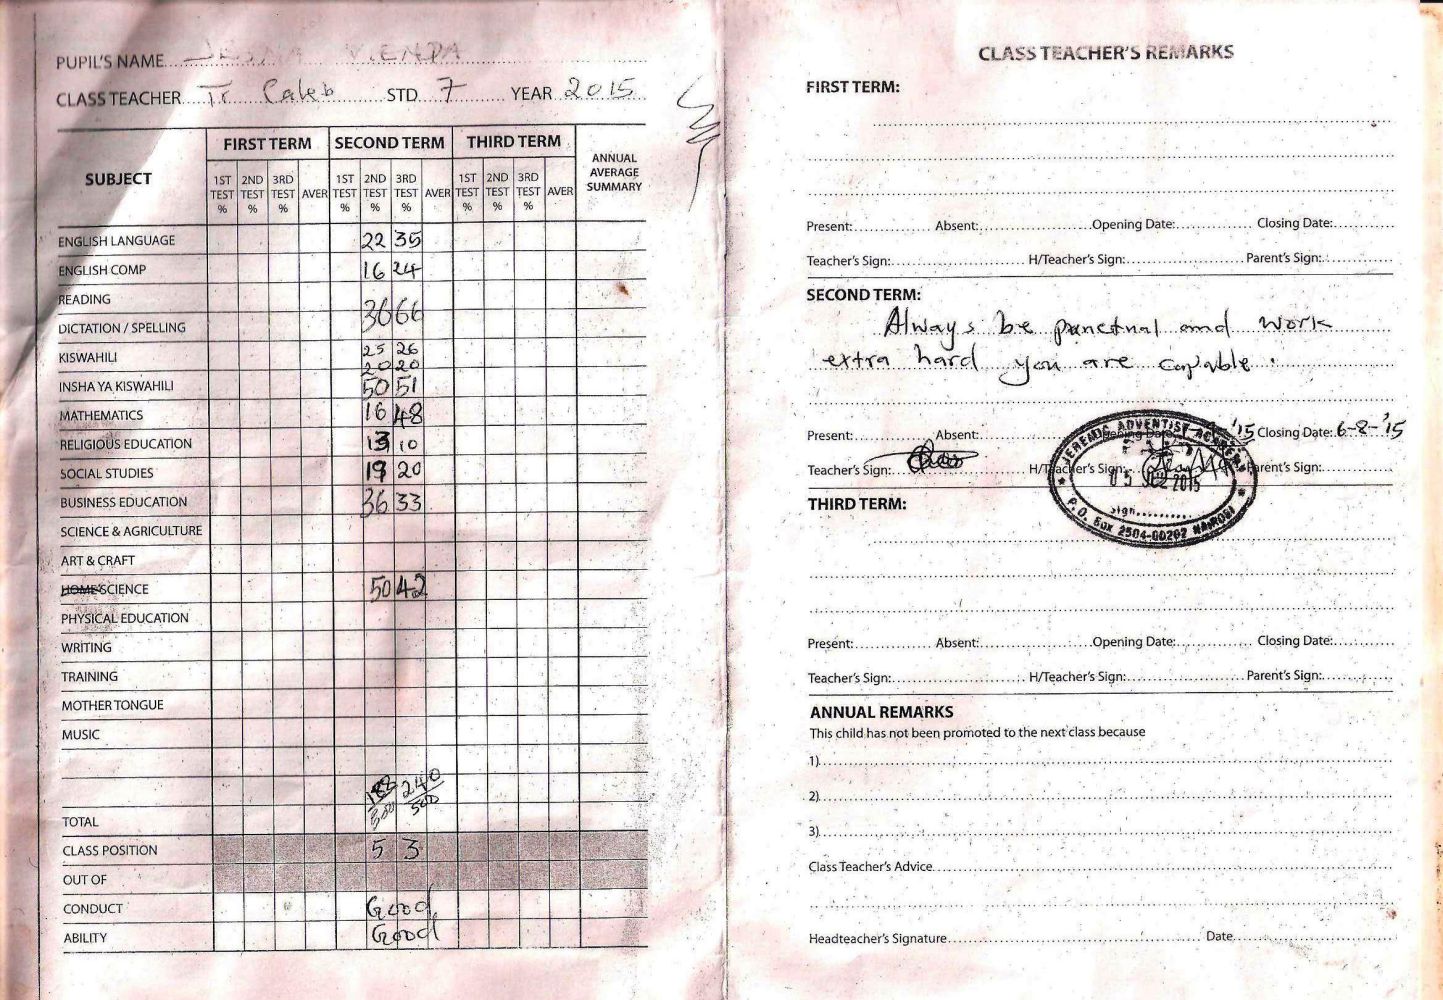 PUPIL'S NAME
CLASS TEACHER Tr Caleb STD 7 YEAR 2015
SUBJECT FIRST TERM SECOND TERM THIRD TERM ANNUAL AVERAGE SUMMARY
1ST TEST % 2ND TEST % 3RD TEST % AVER 1ST TEST % 2ND TEST % 3RD TEST % AVER 1ST TEST % 2ND TEST % 3RD TEST % AVER
ENGLISH LANGUAGE 22 35
ENGLISH COMP 16 24
READING
DICTATION / SPELLING 36 66
KISWAHILI 25 26
20 20
INSHA YA KISWAHILI 50 51
MATHEMATICS 16 48
RELIGIOUS EDUCATION 13 10
SOCIAL STUDIES 19 20
BUSINESS EDUCATION 36 33
SCIENCE & AGRICULTURE
ART & CRAFT
HOME SCIENCE 50 42
PHYSICAL EDUCATION
WRITING
TRAINING
MOTHER TONGUE
MUSIC
TOTAL 188/500 240/500
CLASS POSITION 5 3
OUT OF
CONDUCT Good
ABILITY Good
CLASS TEACHER'S REMARKS
FIRST TERM:
Present: Absent: Opening Date: Closing Date:
Teacher's Sign: H/Teacher's Sign: Parent's Sign:
SECOND TERM:
Always be punctual and work
extra hard you are capable.
Present: Absent: Opening Date: '15 Closing Date: 6-8-'15
Teacher's Sign: H/Teacher's Sign: Parent's Sign:
ADVENTIST
2015
Sign
P.O. Box 2504-00202 NAIROBI
THIRD TERM:
Present: Absent: Opening Date: Closing Date:
Teacher's Sign: H/Teacher's Sign: Parent's Sign:
ANNUAL REMARKS
This child has not been promoted to the next class because
1)
2)
3)
Class Teacher's Advice
Headteacher's Signature Date